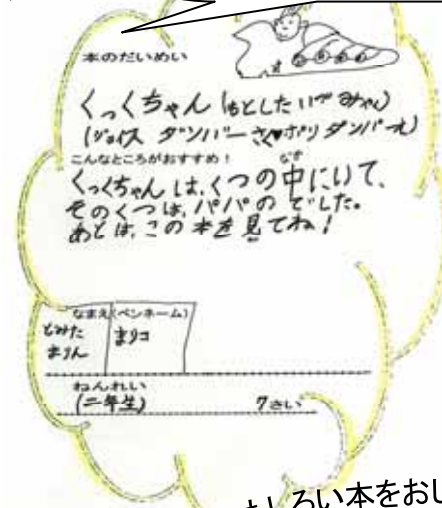 本のだいめい
くっくちゃん (もとしたいずみやく)
(ジョイス ダンバーさく♥ポリ ダンバーえ)
こんなところがおすすめ!
くっくちゃんは、くつの中にいて、
そのくつは、パパのでした。
あとは、この本を見てね!
なまえ(ペンネーム)
とみた まりこ
まりん
ねんれい
(二年生) 7さい
しろい本をおし